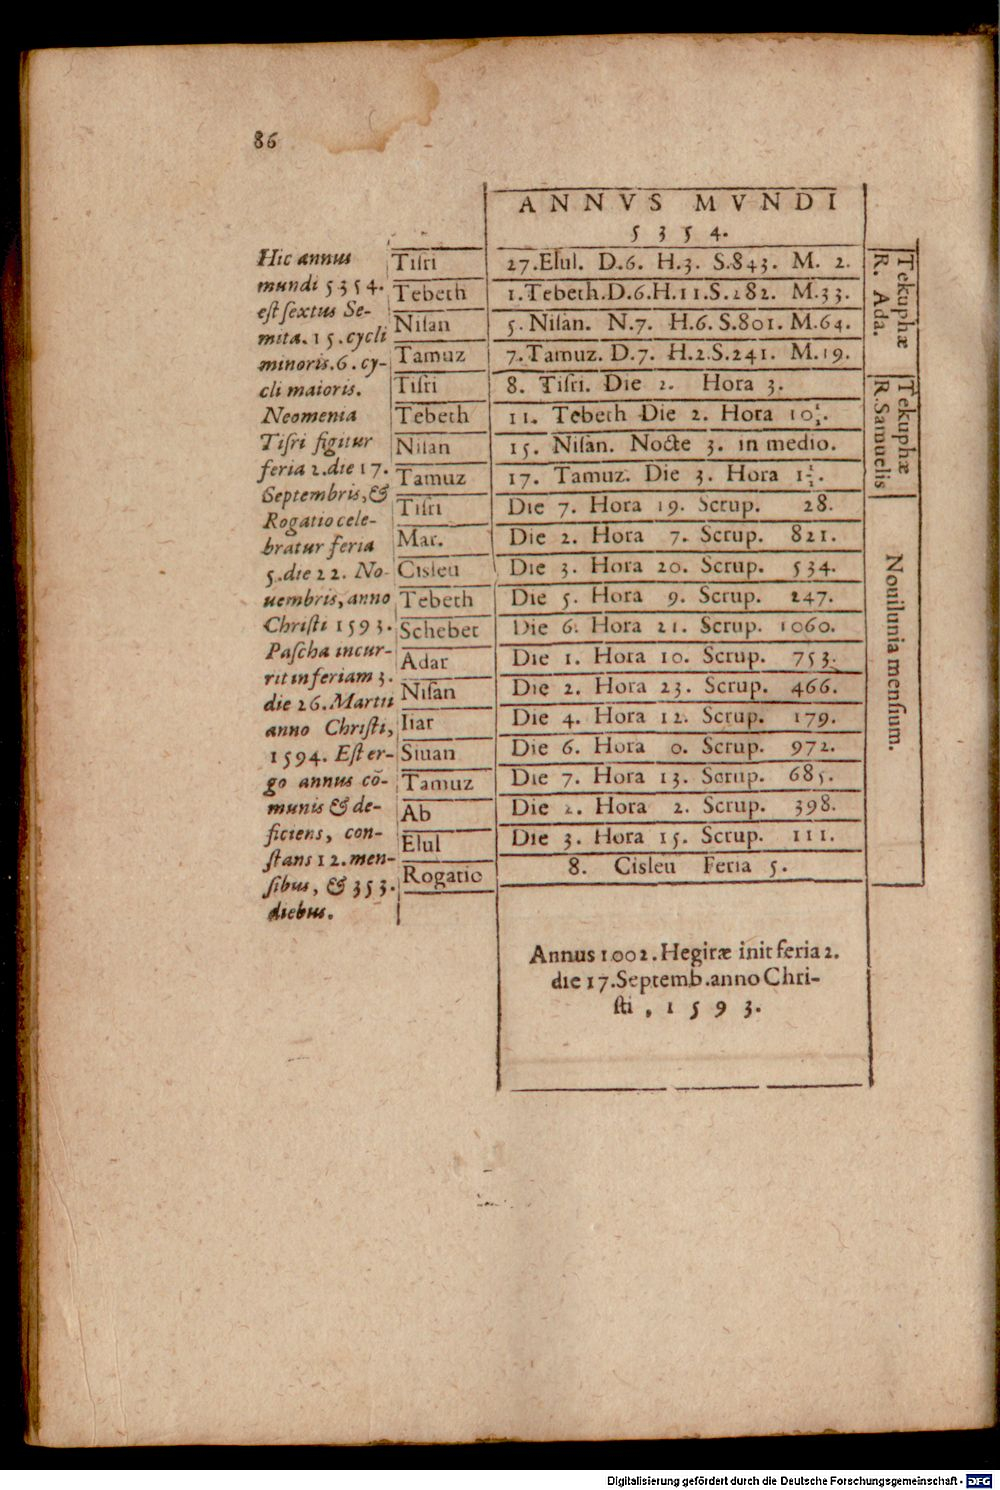 86
ANNVS MVNDI
5354.
Hic annus
mundi 5354.
est sextus Se-
mita. 15. cycli
minoris. 6. cy-
cli maioris.
Neomenia
Tisri figitur
feria 2. die 17.
Septembris, &
Rogatio cele-
bratur feria
5. die 22. No-
uembris, anno
Christi 1593.
Pascha incur-
rit in feriam 3.
die 26. Martii
anno Christi,
1594. Est er-
go annus cõ-
munis & de-
ficiens, con-
stans 12. men-
sibus, & 353.
diebus.
Tisri 27. Elul. D.6. H.3. S.843. M. 2.
Tebeth 1. Tebeth. D.6. H.11. S.282. M.33.
Nisan 5. Nisan. N.7. H.6. S.801. M.64.
Tamuz 7. Tamuz. D.7. H.2. S.241. M.19.
Tisri 8. Tisri. Die 2. Hora 3.
Tebeth 11. Tebeth Die 2. Hora 10½.
Nisan 15. Nisan. Nocte 3. in medio.
Tamuz 17. Tamuz. Die 3. Hora 1½.
Tisri Die 7. Hora 19. Scrup. 28.
Mar. Die 2. Hora 7. Scrup. 821.
Cisleu Die 3. Hora 20. Scrup. 534.
Tebeth Die 5. Hora 9. Scrup. 247.
Schebet Die 6. Hora 21. Scrup. 1060.
Adar Die 1. Hora 10. Scrup. 753.
Nisan Die 2. Hora 23. Scrup. 466.
Iiar Die 4. Hora 12. Scrup. 179.
Siuan Die 6. Hora 0. Scrup. 972.
Tamuz Die 7. Hora 13. Scrup. 685.
Ab Die 2. Hora 2. Scrup. 398.
Elul Die 3. Hora 15. Scrup. 111.
Rogatio 8. Cisleu Feria 5.
Tekuphæ
R. Ada.
Tekuphæ
R. Samuelis
Nouilunia mensium.
Annus 1002. Hegiræ init feria 2.
die 17. Septemb. anno Chri-
sti, 1593.
Digitalisierung gefördert durch die Deutsche Forschungsgemeinschaft - DFG